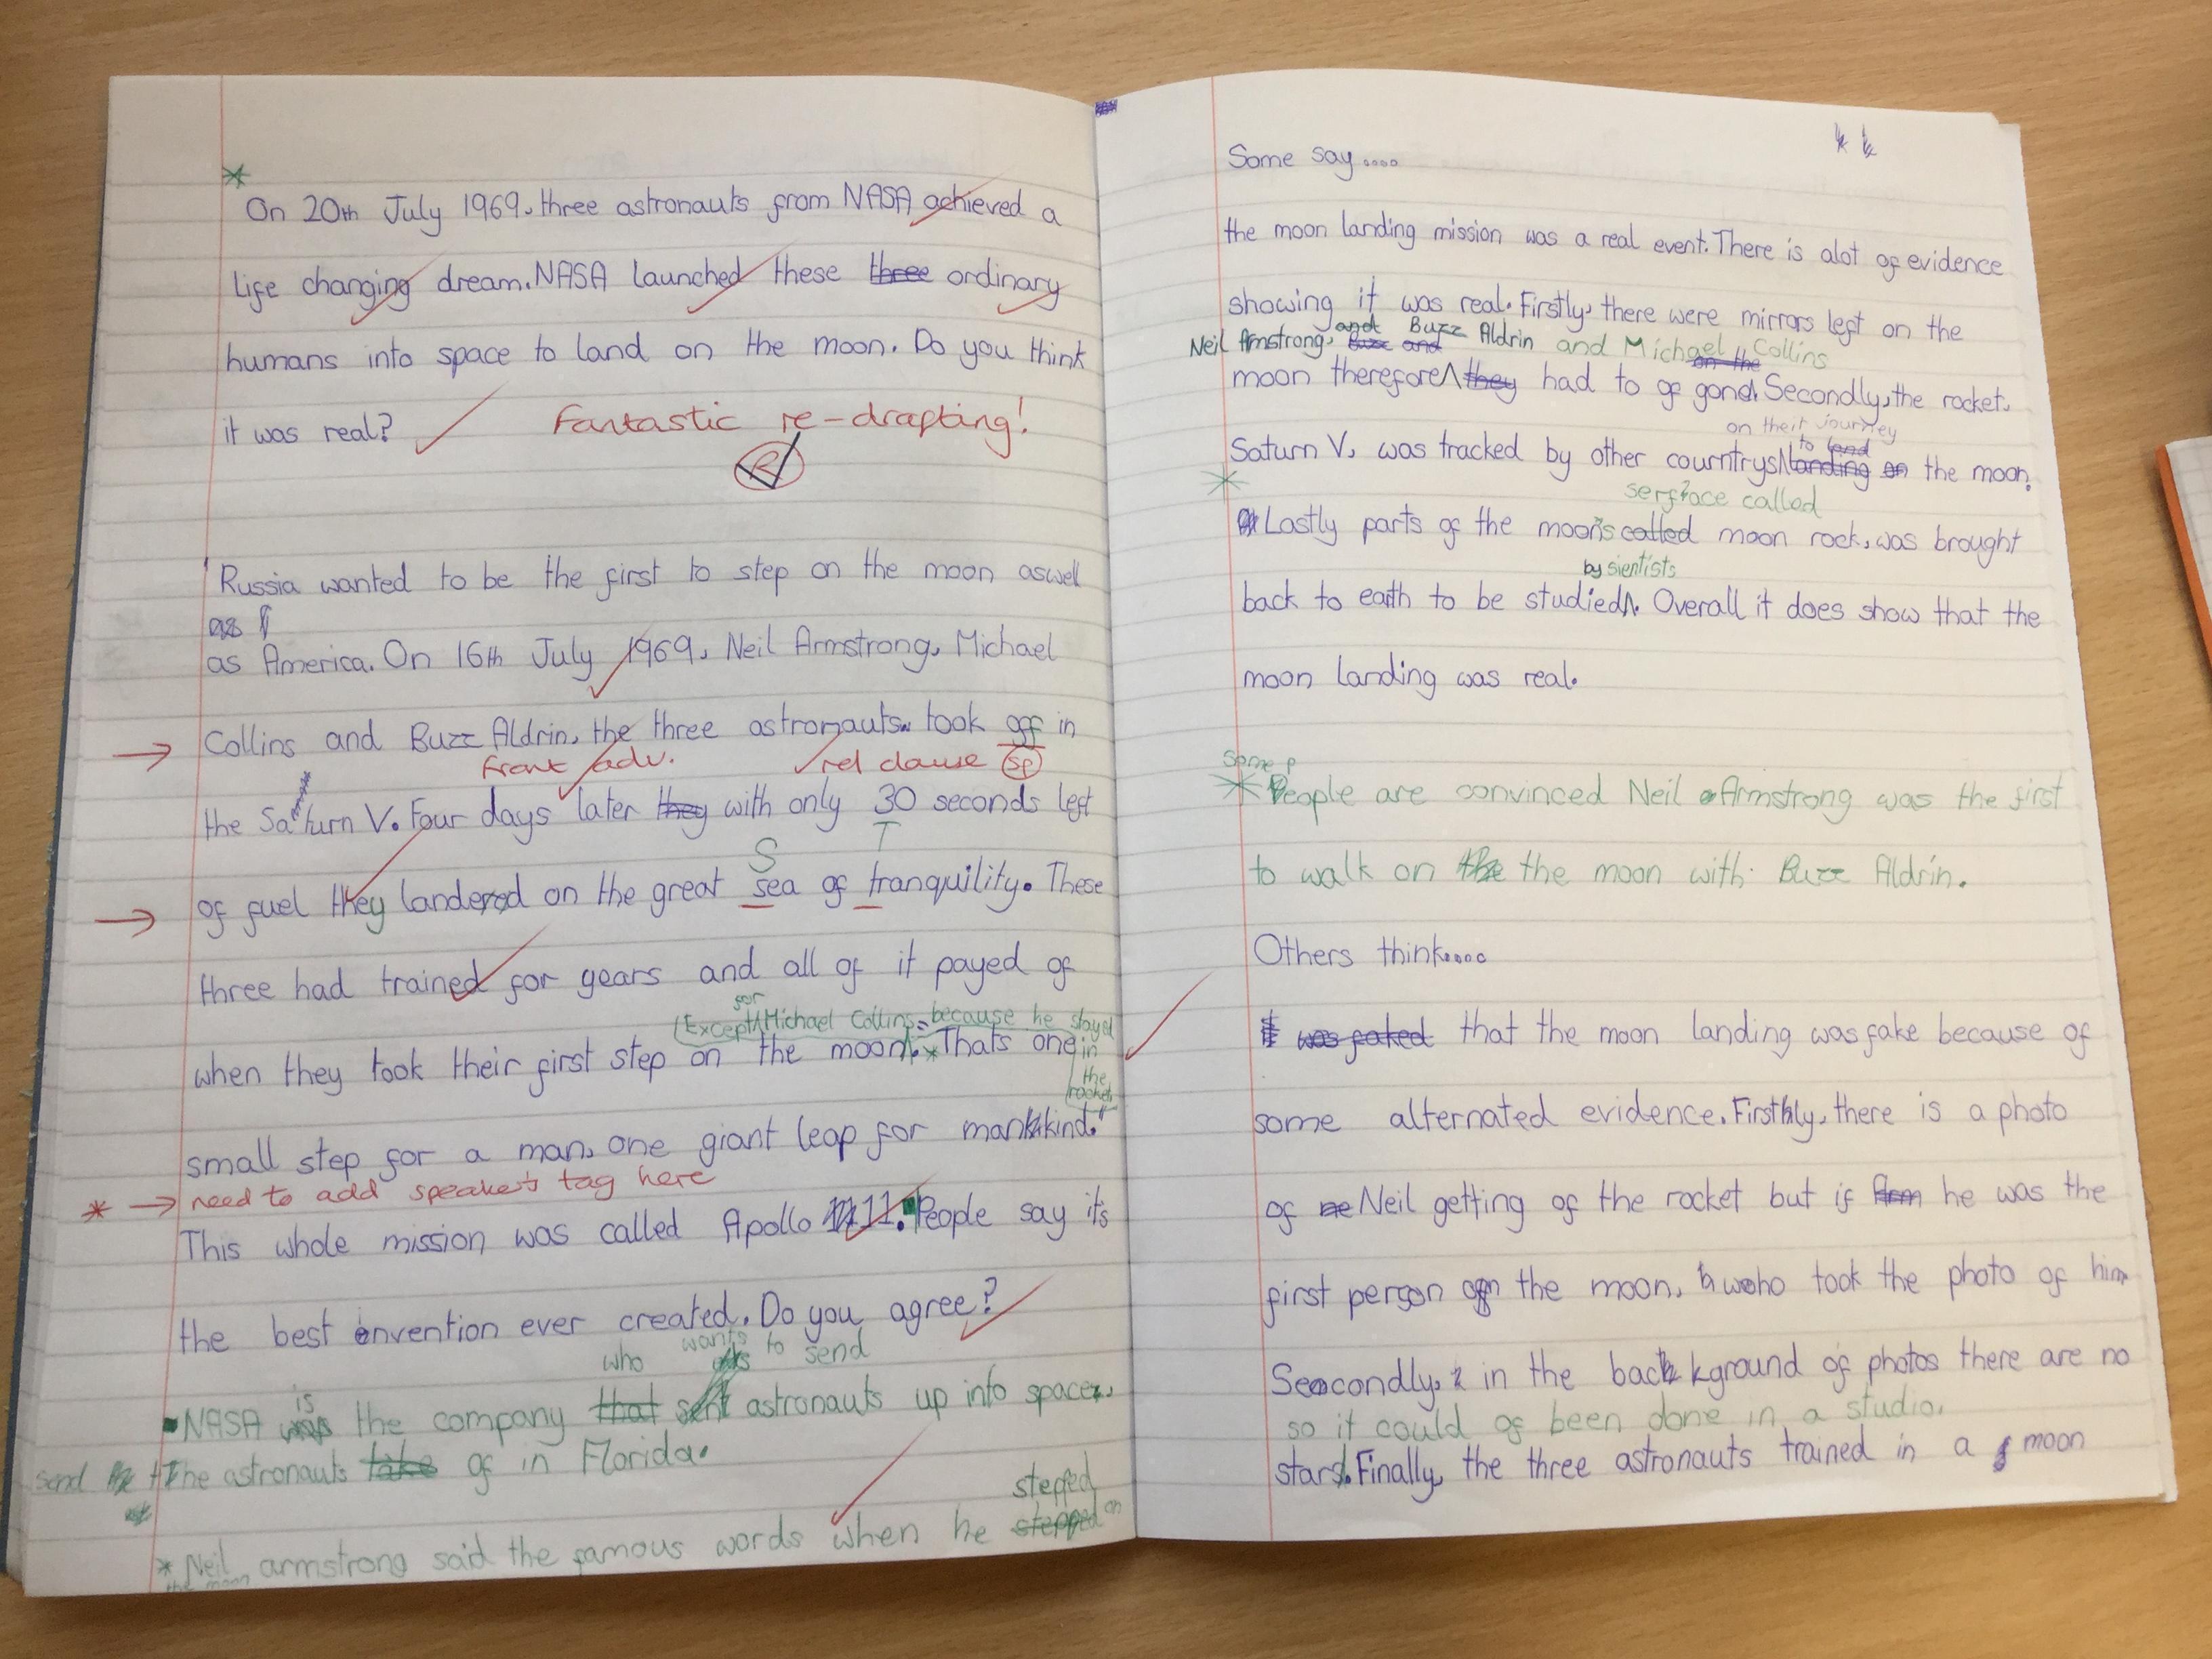 On 20th July 1969, three astronauts from NASA achieved a
life changing dream. NASA launched these three ordinary
humans into space to land on the moon. Do you think
it was real?
Fantastic re-drafting!
Russia wanted to be the first to step on the moon aswell
as
as America. On 16th July 1969, Neil Armstrong, Michael
Collins and Buzz Aldrin, the three astronauts, took of in
front adv. rel clause sp
the Saturn V. Four days later they with only 30 seconds left
S T
of fuel they landered on the great sea of tranquility. These
three had trained for years and all of it payed of
(Except for Michael Collins, because he stayed
when they took their first step on the moon. Thats one in
the
rocket
small step for a man, one giant leap for mankind."
* → need to add speaker's tag here
This whole mission was called Apollo 11. People say it's
the best envention ever created. Do you agree?
who wants to send
is
NASA was the company that sent astronauts up into space.
send The astronauts take of in Florida.
stepped
* Neil armstrong said the famous words when he stepped on
the moon
Some say....
the moon landing mission was a real event. There is alot of evidence
showing it was real. Firstly, there were mirrors left on the
Neil Armstrong, and Buzz Aldrin and Michael Collins
Buzz and on the
moon therefore they had to of gone. Secondly, the rocket,
on their journey
to land
Saturn V, was tracked by other courntrys landing on the moon.
serface called
Lastly parts of the moon's called moon rock, was brought
by sientists
back to earth to be studied. Overall it does show that the
moon landing was real.
Some p
* People are convinced Neil Armstrong was the first
to walk on the the moon with Buzz Aldrin.
Others think....
was faked that the moon landing was fake because of
some alternated evidence. Firstly, there is a photo
of ne Neil getting of the rocket but if he was the
first person on the moon, who took the photo of him
Secondly, in the background of photos there are no
so it could of been done in a studio.
stars. Finally, the three astronauts trained in a moon